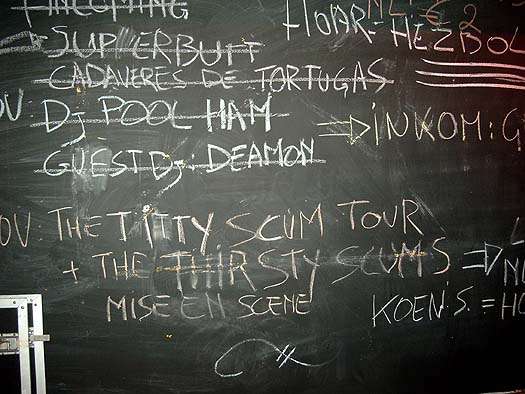 INCOMING
HOAR-HEZBOL
SUPPERBUTT
CADAVERES DE TORTUGAS
DJ POOL HAM
⇒ INKOM: G
GUEST DJ: DEAMON
OV THE TITTY SCUM TOUR
+ THE THIRSTY SCUMS ⇒
MISE EN SCENE
KOEN.S. = HO